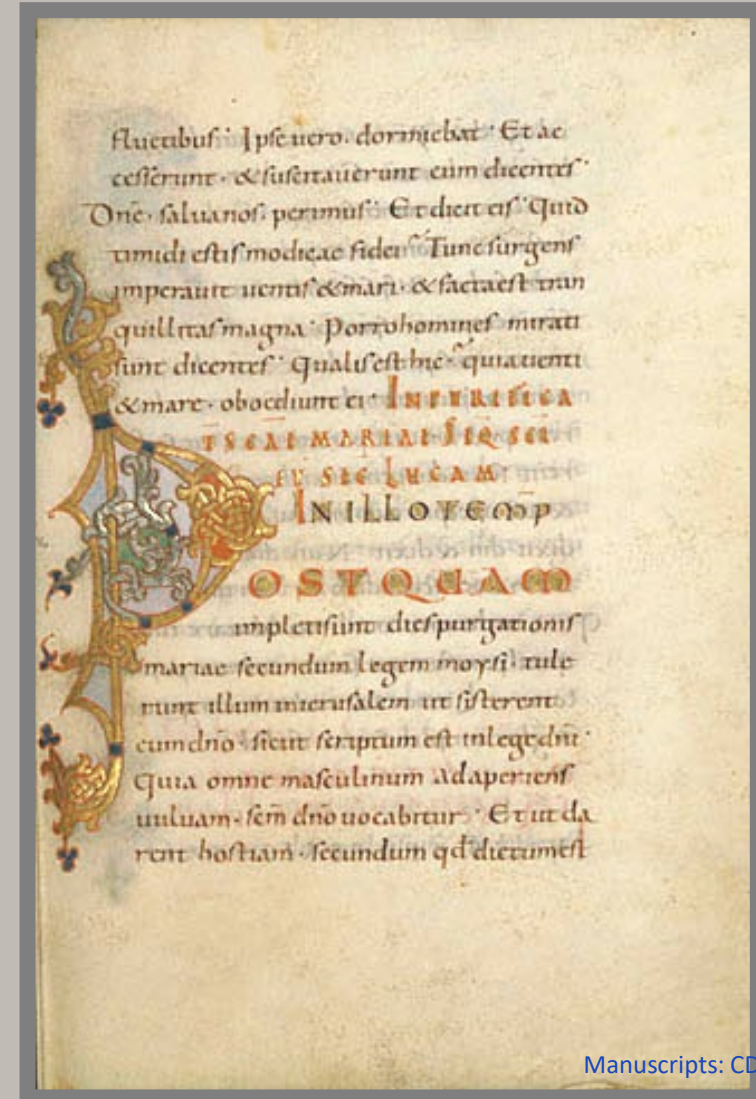 fluctibus. Ipse uero. dormiebat. Et ac
cesserunt. & suscitauerunt eum dicentes.
Dn̄e. salua nos. perimus. Et dicit eis. Quid
timidi estis modicae fidei. Tunc surgens
imperauit uentis & mari. & facta est tran
quillitas magna. Porro homines mirati
sunt dicentes. Qualis est hic. quia uenti
& mare. oboediunt ei. IN PURIFICA
T̄ SC̄AE MARIAE SEQ̄ SC̄I
EŪ SEC̄ LUCAM.
IN ILLO TEMP̄
POSTQUAM
impleti sunt dies purgationis
mariae secundum legem moysi. tule
runt illum in ierusalem ut sisterent
eum dn̄o. sicut scriptum est in lege dn̄i.
Quia omne masculinum adaperiens
uuluam. scm̄ dn̄o uocabitur. Et ut da
rent hostiam. secundum qd̄ dictum est
Manuscripts: CD